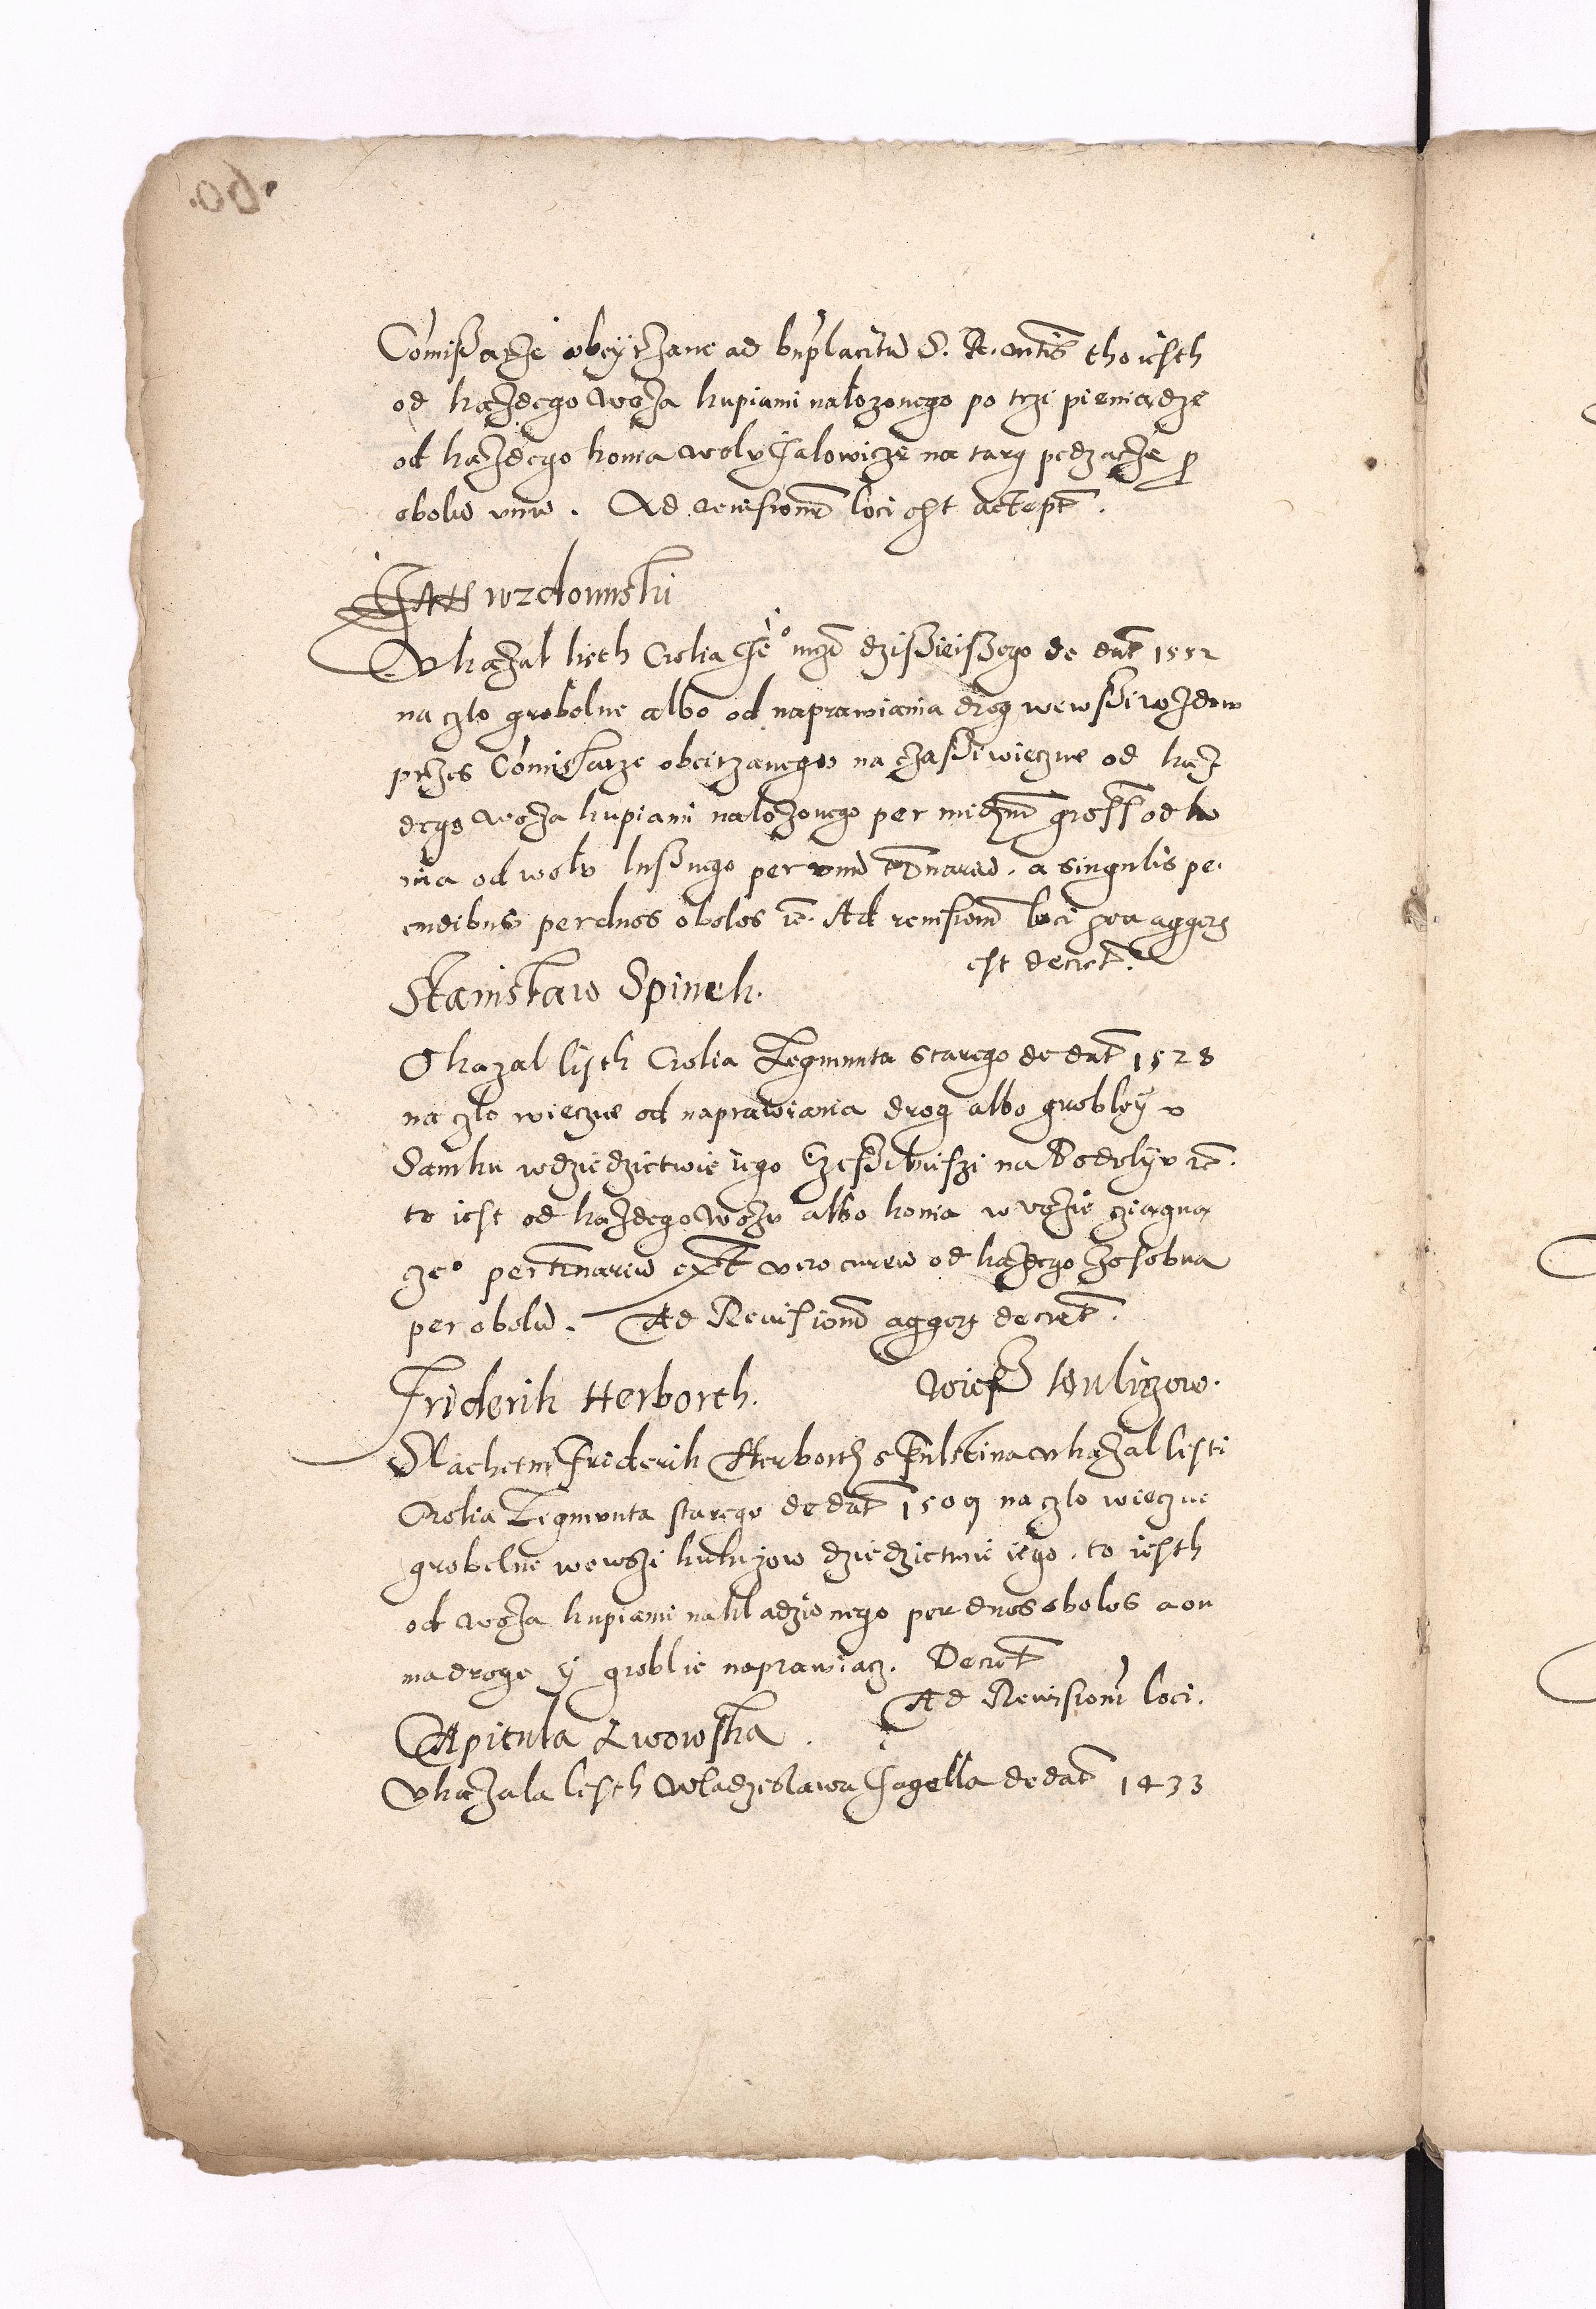 Comißarze obeyrzane ad bnplacitu S. R. mtis tho iesth
od każdego woza kupiami nalozonego po trzi pieniądze
od każdego konia wolu Jalowicze na targ pedzacze p
obolu unu. Ad revisione loci est accept.
Jan wzdowski
Ukazal listh Crolia Je° mczi dzißieißego de dat 1552
na czlo grobelne albo od naprawiania drog wewsi wzdow
przes Comissarze obeirzanego na czassi wieczne od każ
dego woza kupiami nalozonego per mediu gross od ko
nia od wolu lußnego per unu denariu. a singulis pe
cudibus per duos obolos ic. Ad revisione loci seu aggeris
est decret.
Stanislaw Spinek.
Okazal listh Crolia Zegmunta starego de dat 1528
na czlo wieczne od naprawiania drog albo grobley u
Samku wdziedzictwie iego na Podolyu ic.
to iest od każdego wozu albo konia w vozie ciagną
cze° per denariu extra vero curru od każdego zosobna
per obolu. Ad Revisione aggeris decret.
Friderik Herborth. wieß kulizow.
Slachetni Friderik Herborth s Fulstina ukazal listi
Crolia Zegmunta starego de dat 1509 na czlo wieczne
grobelne wewsi kulizow dziedzictwie iego. to iesth
od woza kupiami nakladzionego per duos obolos a on
ma droge y groblie naprawiacz. Decret
Ad Revisione loci.
Capitula Lwowska.
Ukazala listh Wladzislawa Jagella de dat 1433